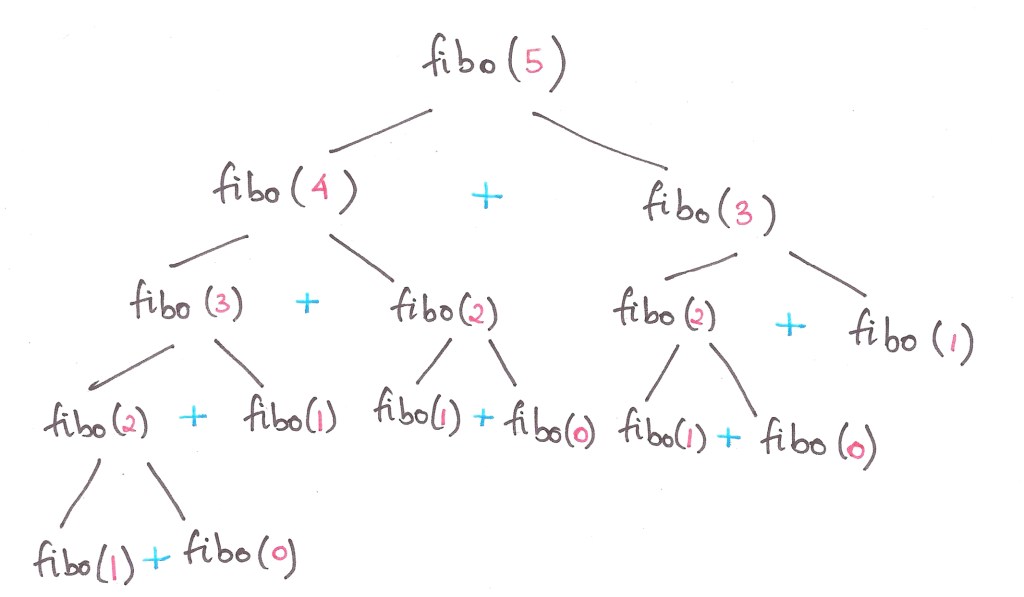 fibo(5)
fibo(4) + fibo(3)
fibo(3) + fibo(2) fibo(2) + fibo(1)
fibo(2) + fibo(1) fibo(1) + fibo(0) fibo(1) + fibo(0)
fibo(1) + fibo(0)